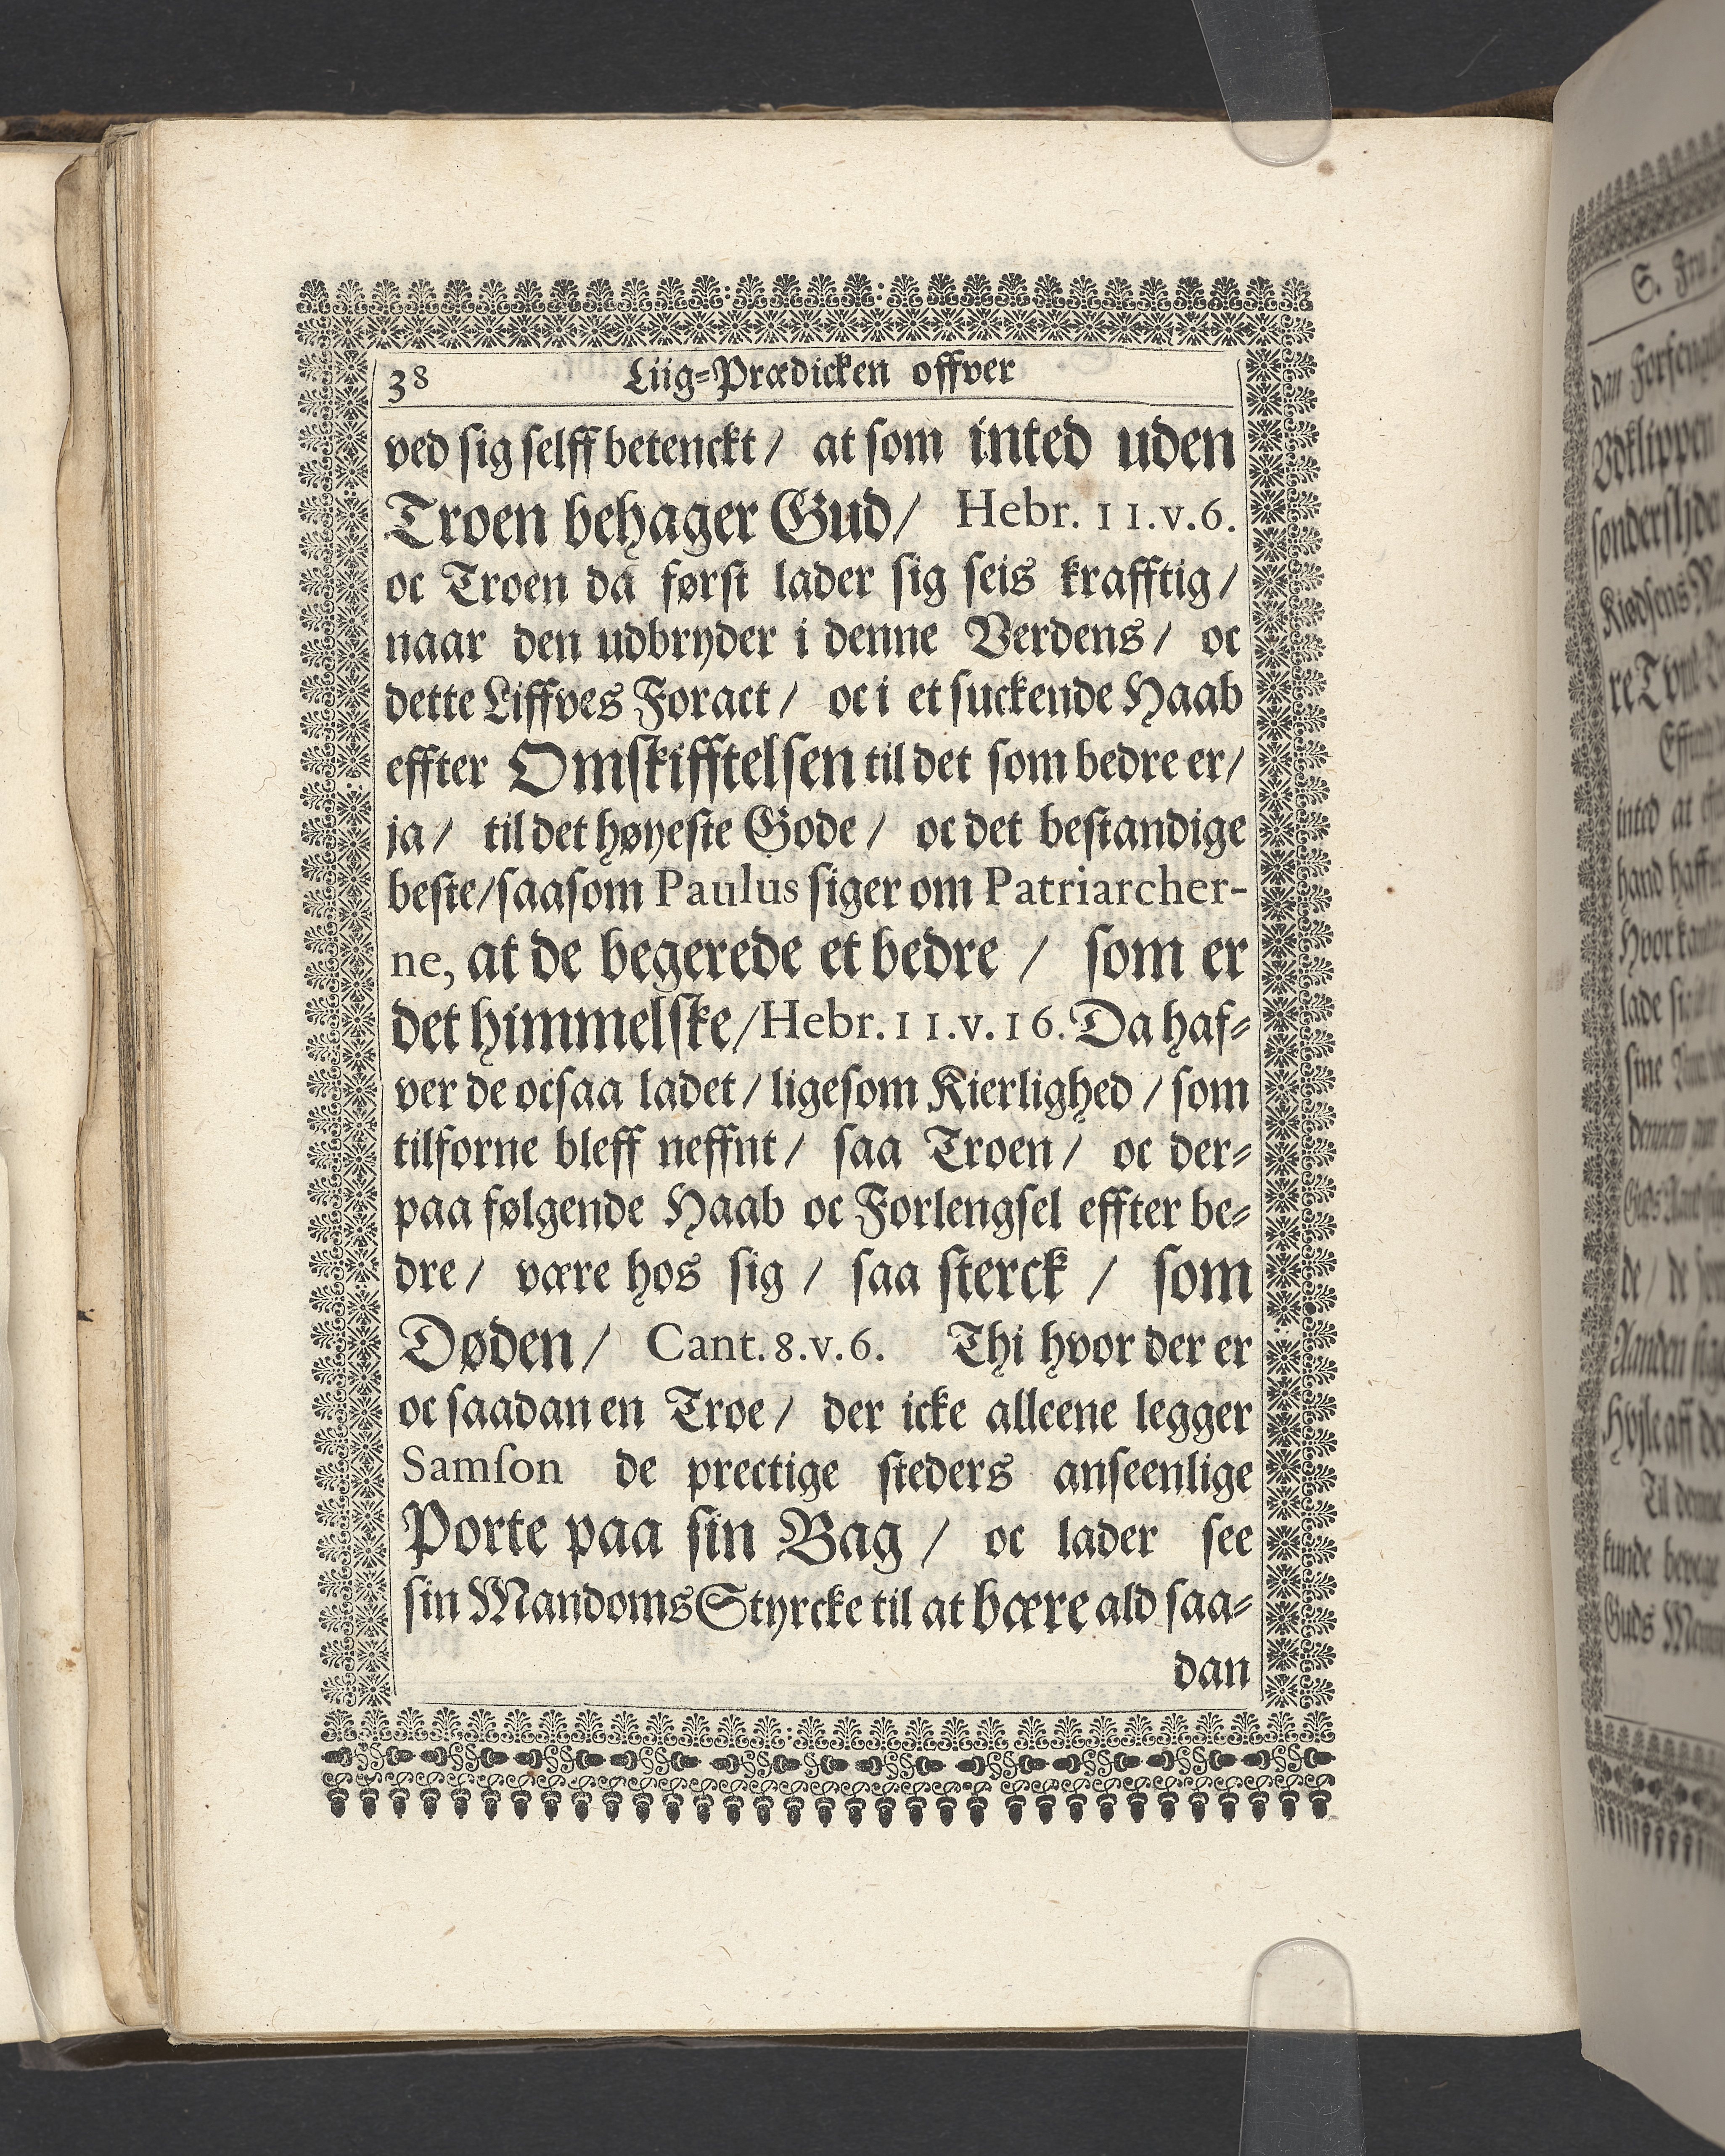 38 Liig-Prædicken offver
ved sig selff betenckt / at som inted uden
Troen behager Gud / Hebr. 11.v.6.
oc Troen da først lader sig seis krafftig /
naar den udbryder i denne Verdens / oc
dette Liffves Foract / oc i et suckende Haab
effter Omskifftelsen til det som bedre er /
ja / til det høyeste Gode / oc det bestandige
beste / saasom Paulus siger om Patriarcher-
ne, at de begerede et bedre / som er
det himmelske / Hebr. 11.v.16. Da haf-
ver de ocsaa ladet / ligesom Kierlighed / som
tilforne bleff neffnt / saa Troen / oc der-
paa følgende Haab oc Forlengsel effter be-
dre / være hos sig / saa sterck / som
Døden / Cant. 8.v.6. Thi hvor der er
oc saadan en Troe / der icke alleene legger
Samson de prectige steders anseenlige
Porte paa sin Bag / oc lader see
sin Mandoms Styrcke til at bære ald saa-
dan
S. Fru
dan
Vdklippen
inted at
hand
lade
sine
de / de
Aanden
Til denne
kunde bevege
Guds